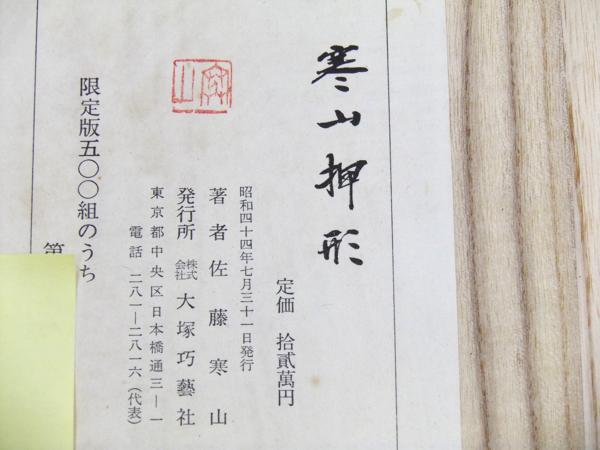 寒山押形
定価 拾貳萬円
昭和四十四年七月三十一日発行
著者 佐藤寒山
発行所 株式会社 大塚巧藝社
東京都中央区日本橋通三―一
電話 二八一―二八一六(代表)
寒山
限定版五〇〇組のうち
第